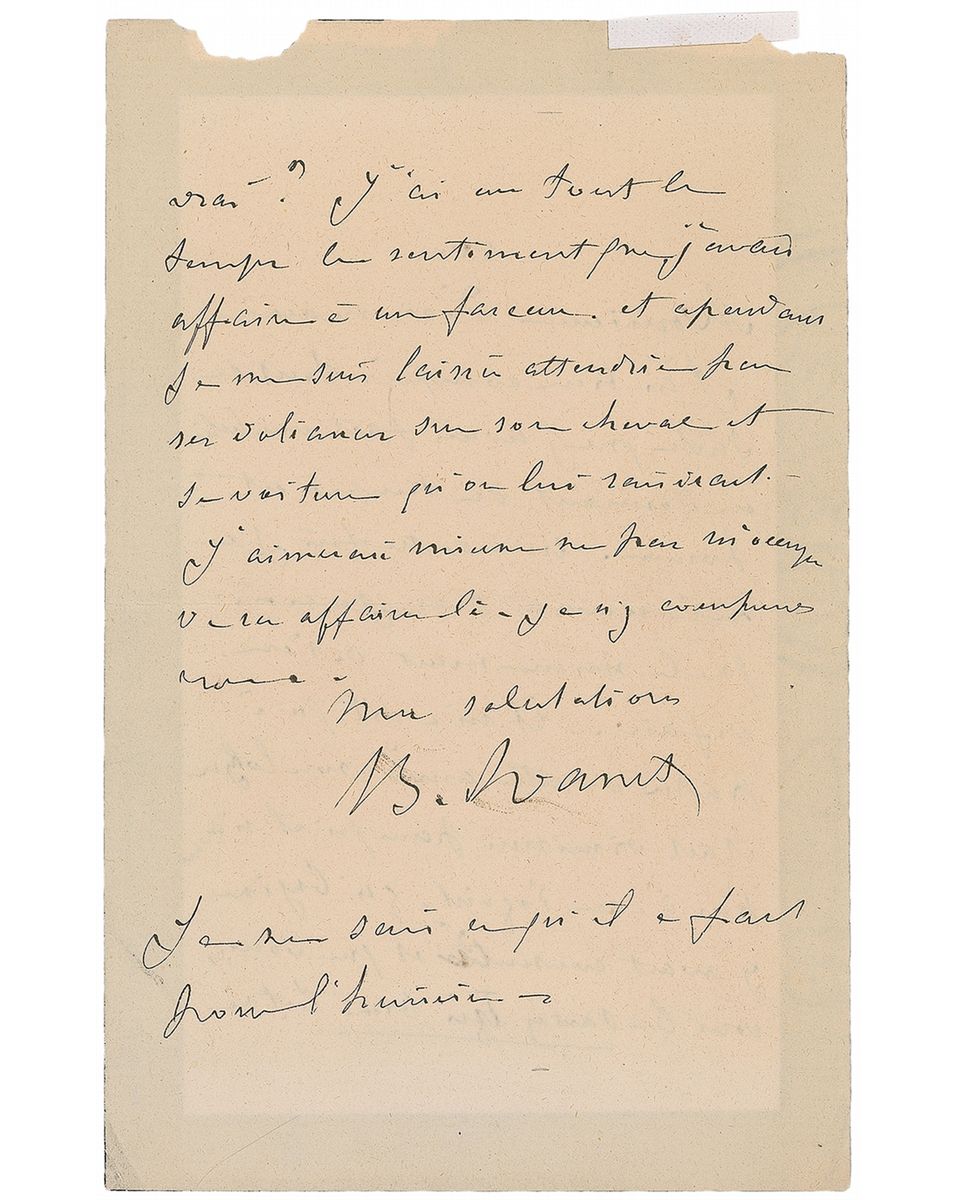 vrai ? J'ai eu tout le
temps le sentiment que j'avais
affaire à un farceur. et cependant
je me suis laissée attendrir par
ses doléances sur son cheval et
sa voiture qu'on lui saisirait. -
J'aimerais mieux ne pas m'occuper
de ces affaires là - je n'y comprends
Mes salutations
Je ne sais ce qu'il a fait
pour l'huissier -